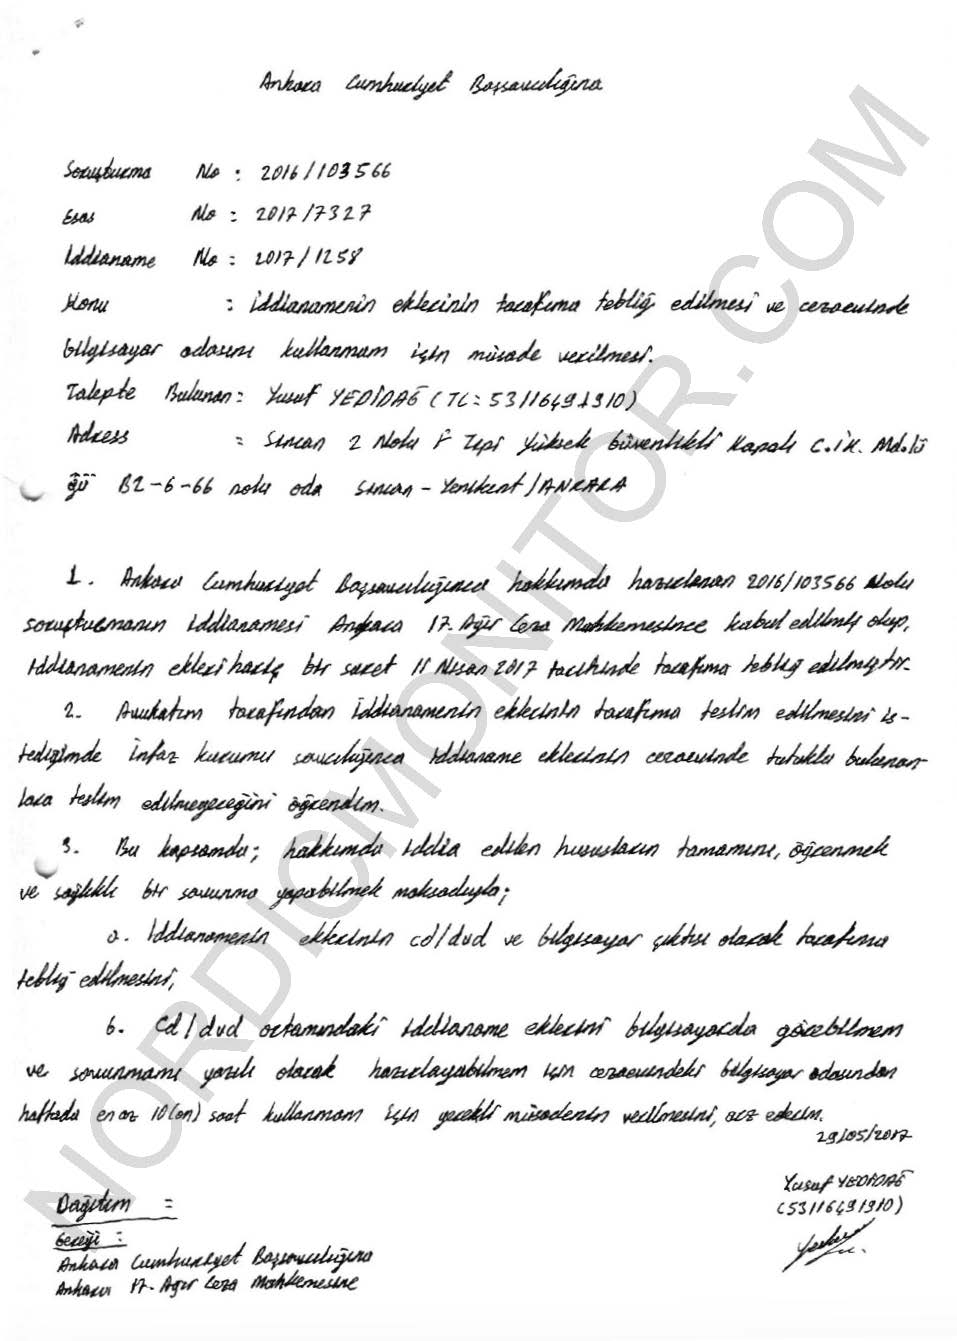 Ankara Cumhuriyet Başsavcılığına
Soruşturma No : 2016/103566
Esas No : 2017/7327
İddianame No : 2017/1258
Konu : İddianamenin eklerinin tarafıma tebliğ edilmesi ve cezaevinde
bilgisayar odasını kullanmam için müsade verilmesi.
Talepte Bulunan : Yusuf YEDİDAĞ (TC : 53116491910)
Adress : Sincan 2 Nolu F Tipi Yüksek Güvenlikli Kapalı C.İK. Md.lü
ğü B2-6-66 nolu oda Sincan - Yenikent/ANKARA
1. Ankara Cumhuriyet Başsavcılığınca hakkımda hazırlanan 2016/103566 Nolu
soruşturmanın iddianamesi Ankara 17. Ağır Ceza Mahkemesince kabul edilmiş olup,
iddianamenin ekleri hariç bir suret 11 Nisan 2017 tarihinde tarafıma tebliğ edilmiştir.
2. Avukatım tarafından iddianamenin eklerinin tarafıma teslim edilmesini is-
tediğimde İnfaz kurumu savcılığınca iddianame eklerinin cezaevinde tutuklu bulunan-
lara teslim edilmeyeceğini öğrendim.
3. Bu kapsamda; hakkımda iddia edilen hususların tamamını, öğrenmek
ve sağlıklı bir savunma yapabilmek maksadıyla;
a. İddianamenin eklerinin cd/dvd ve bilgisayar çıktısı olarak tarafıma
tebliğ edilmesini,
b. Cd/dvd ortamındaki iddianame eklerini bilgisayarda görebilmem
ve savunmamı yazılı olarak hazırlayabilmem için cezaevindeki bilgisayar odasından
haftada en az 10(on) saat kullanmam için gerekli müsadenin verilmesini, arz ederim.
29/05/2017
Yusuf YEDİDAĞ
(53116491910)
Dağıtım :
Gereği :
Ankara Cumhuriyet Başsavcılığına
Ankara 17. Ağır Ceza Mahkemesine
NORDICMONITOR.COM